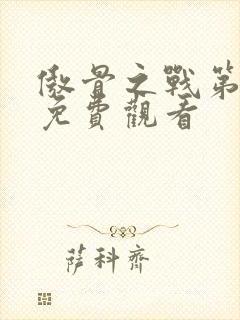 傲骨之戰第
免費觀看
薩科齊